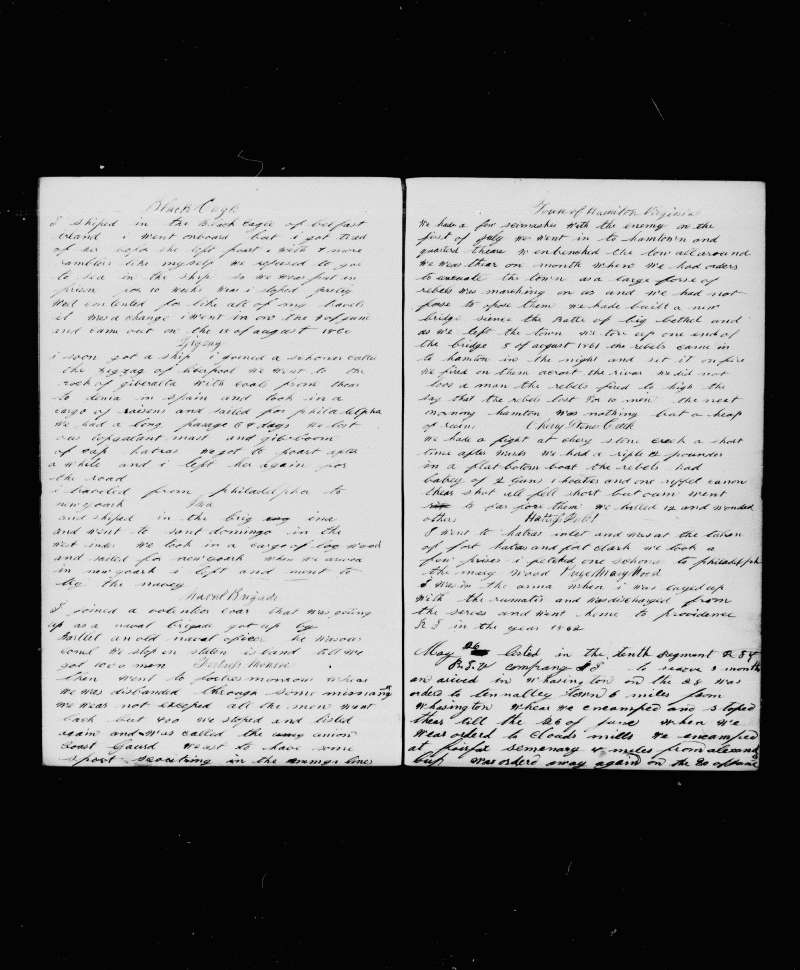 Black Eagle
I shiped in the Black Eagle of belfast
ireland i went onboard but i got tired
of her before she left poart. with 4 more
ramblers like my self we refused to goe
to sea in the ship so we wear put in
prison for 10 weaks wear i stoped prety
well contented for like all of my travels
it was a change i went in on the 9 of june
and came out on the 18 of august 1860
Zigzag
i soon got a ship i joined a schoner called
the zigzag of liverpool we went to the
rock of giberalta with coals from thear
to denia in spain and took in a
cargo of raisens and sailed for philadelpha
we had a long passage 64 days we lost
our topgalant mast and gib-boom
of cap hatras we got to poart after
a while and i left her again for
the road
i traveled from philadelpha to
newyoark Ina
and shiped in the brig ina
and went to sant domingo in the
west indes we took in a cargo of log wood
and sailed for newyoark when we arived
in newyoark i left and went to
try the navey
Navel Brigade
I joined a volentier coar that was going
up as a naval brigade got up by
Bartlet an old naval oficer he was our
conel we stop on staten island till we
got 1000 men Fortris Monroe
then went to fortris monrow whear
we was disbanded through some missing
we wear not excepted all the men went
back but 400 we stoped and listed
again and was called the union
coast Gaurd we ust to have some
sport scouting in the enemys lines
Town of Hamiton Virginia
We had a few scrmashes with the enemy on the
first of July we went in to hamtown and
quarterd theare we entrenched the tow all around
we wear thear on month when we had orders
to evacuate the town as a large forse of
rebels was marching on us and we had not
forse to opose them we had built a new
bridge since the Batle of big bethel and
as we left the town we tore up one end of
the bridge 8 of august 1861 the rebels came in
to hamton in the night and set it on fire
we fired on them acrost the river we did not
loos a man the rebels fired to high the
say that the rebels lost 8 or 10 men the next
morning hamton was nothing but a heap
of ruins Chery Stone Creek
We had a fight at chery stone creek a short
time after wards we had a rifle 12 pounder
in a flat botom boat the rebels had
batrey of 2 guns 1 houtier and one ryfled canon
thear shot all fell short but ours went
to far fore them we killed 12 and wonded
others Hatras Inlet
I went to hatras inlet and was at the taken
of fort hatras and fort clark we took a
few prises i piloted one schoner to philadelpha
the mary wood Prize Mary Wood
I was in the arma when i was layed up
with the rumatis and was discharged from
the serves and went home to providence
R I in the year 1862
May 26 listed in the tenth regment R I V
R.I.V company to searve 3 month
an arived in Whasington on the 28 was
orders to tennalley town 6 miles from
Whasington whear we encamped and stoped
thear till the 26 of june when we
wear orderd to clouds mills we encamped
at fairfax semenary 4 miles from alexand
but was orderd away again on the 30 of june